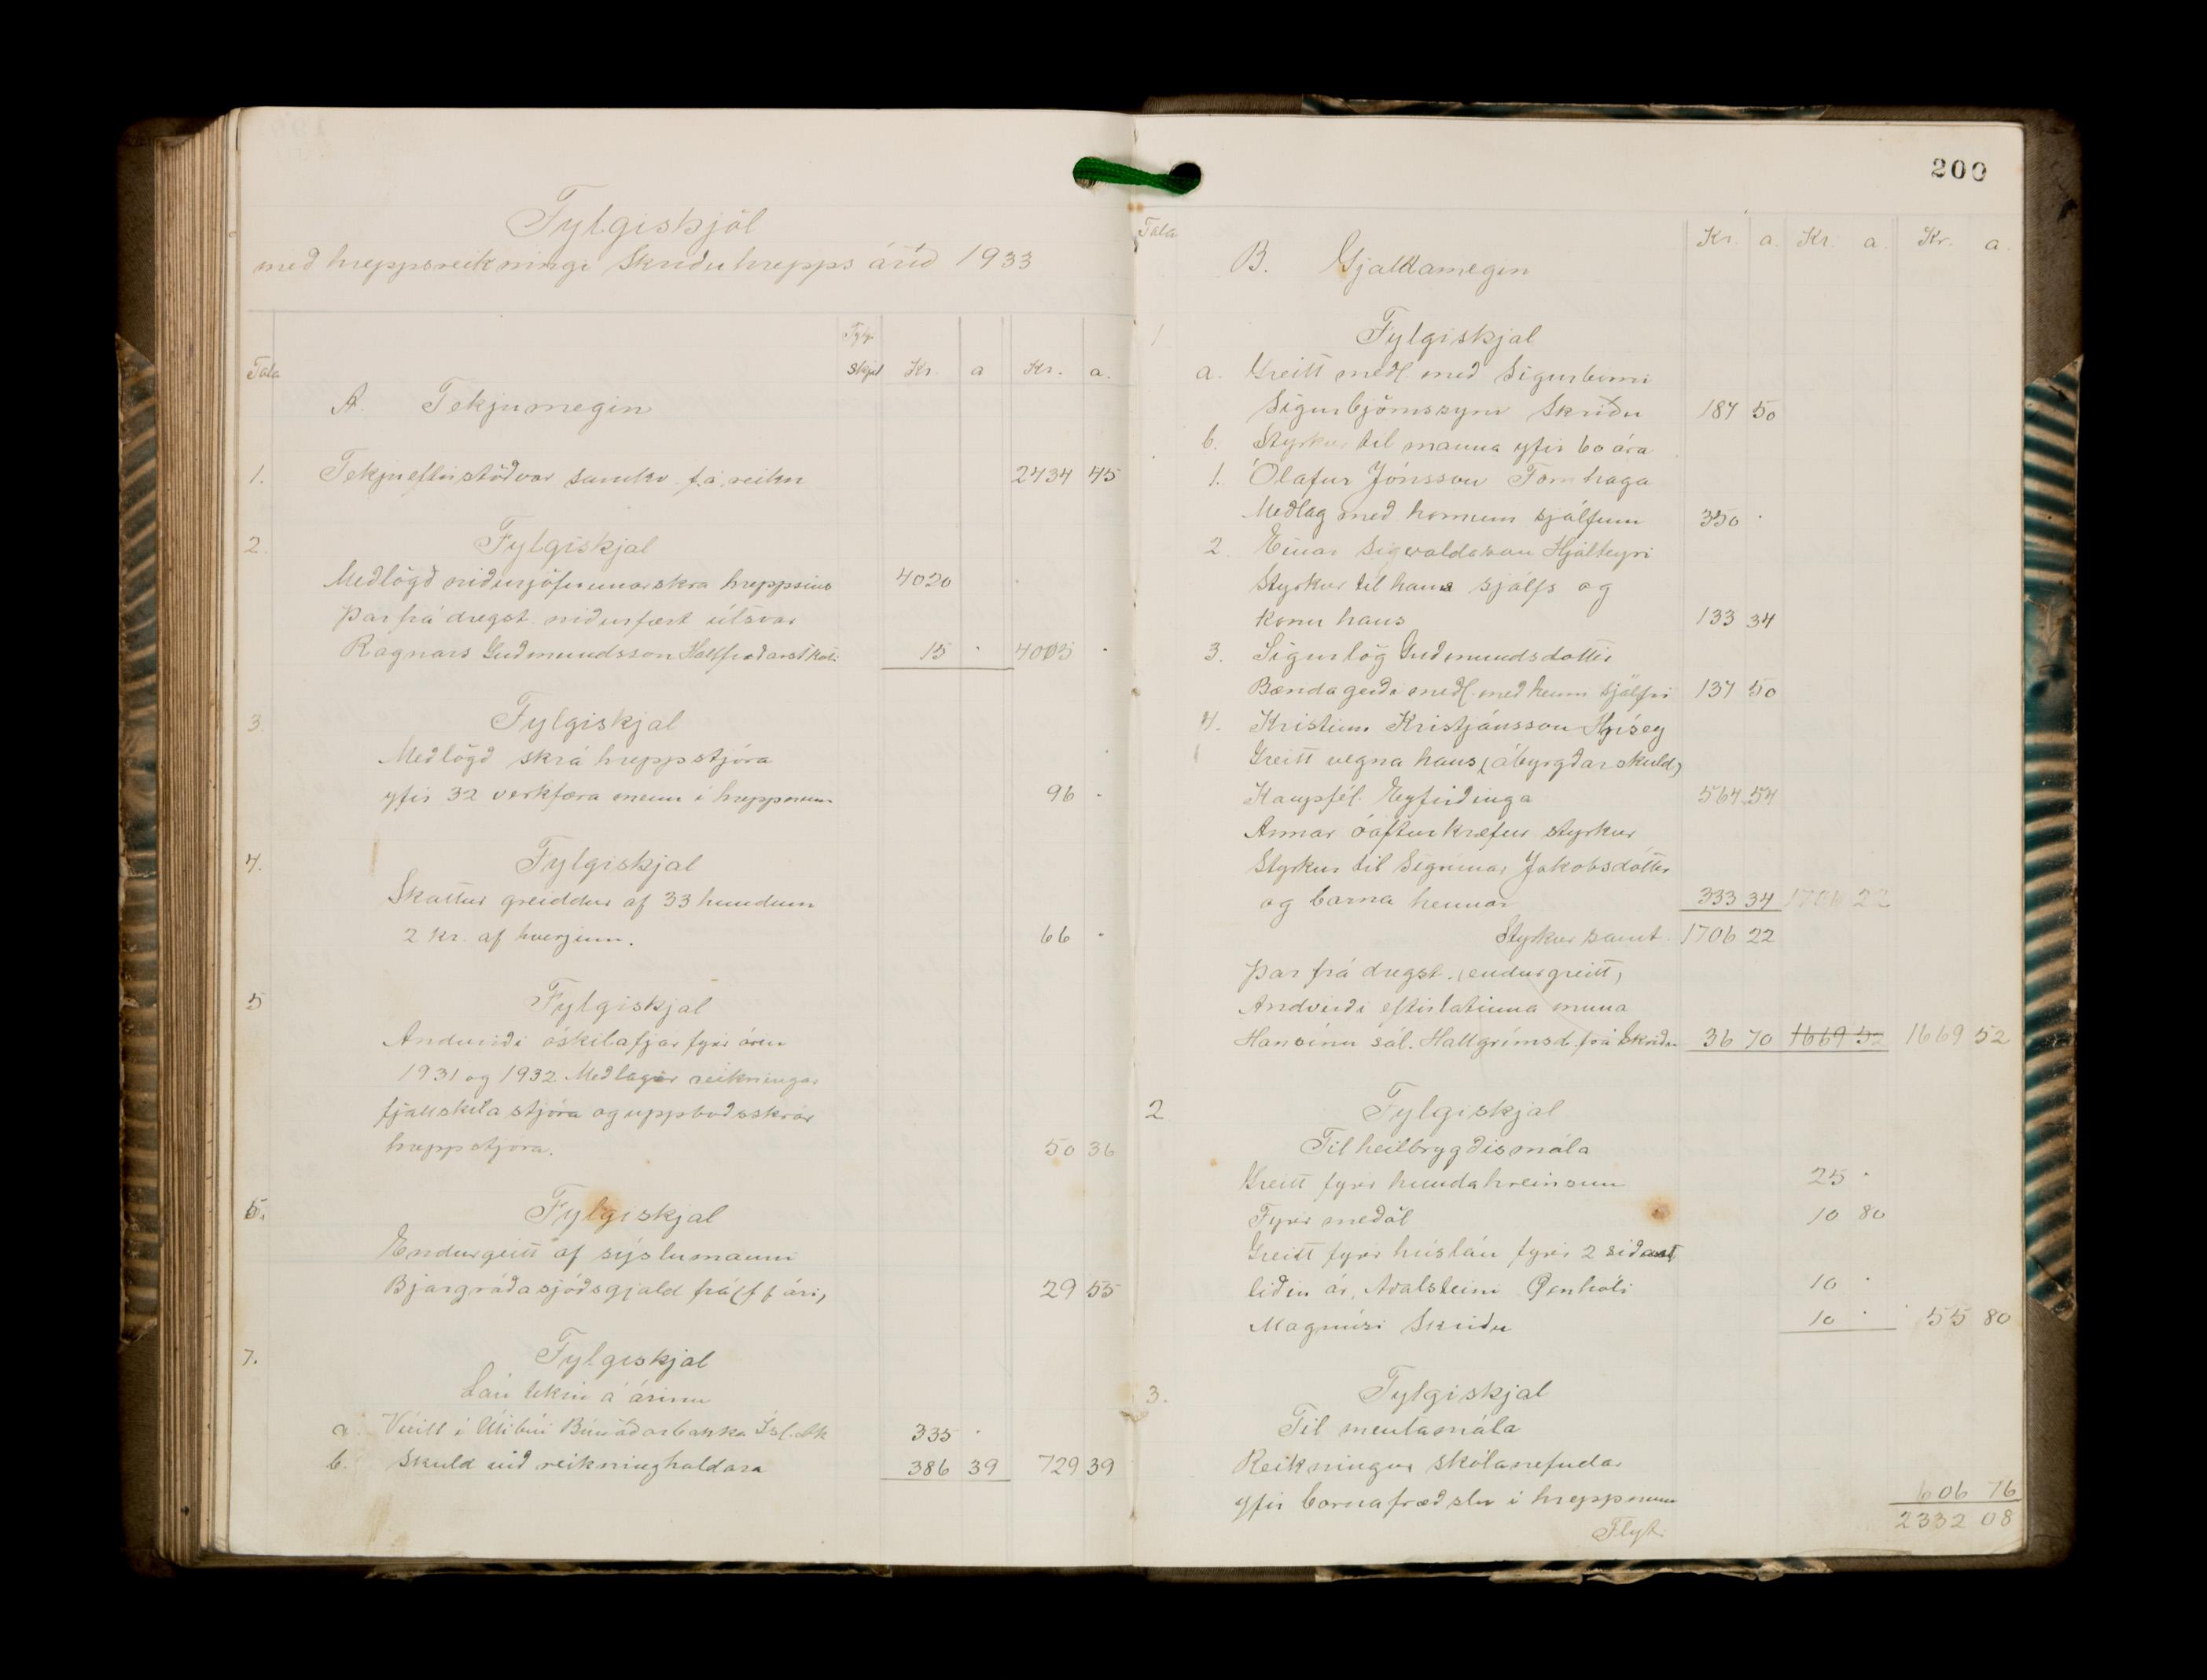 Fylgiskjöl
með hreppsreikningi Skriðuhrepps árið 1933
Fylgi
Tala skjal Kr. a Kr. a.
A. Tekjumegin
1. Tekjueftirstöðvar samkv. f. á. reikn 2434 45
2. Fylgiskjal
Meðlögð niðurjöfnunarskra hreppsins 4020
Þar frá dregst niðurfært útsvar
Ragnars Guðmundsson Hallfríðarstköti 15 · 4005 ·
3. Fylgiskjal
Meðlögð skrá hreppstjóra
yfir 32 verkfæra menn í hreppnum 96 -
4. Fylgiskjal
Skattur greiddur af 33 hundum
2 kr. af hverjum. 66 -
5 Fylgiskjal
Andvirði óskilafjár fyrir árin
1931 og 1932 Meðlagðir reikningar
fjallskilastjóra og uppboðsskrár
hreppstjóra. 50 36
6. Fylgiskjal
Endurgeitt af sýslumanni
Bjargráðasjóðsgjald frá (f f ári) 29 55
7. Fylgiskjal
Lán tekin á árinu
a. Víxill í Útibúi Búnaðarbanka Ísl. Ak 335 ·
b. Skuld við reikninghaldara 386 39 729 39
200
Tala Kr. a. Kr. a. Kr. a.
B. Gjaldamegin
1 Fylgiskjal
a. Greitt meðl. með Sigurbirni
Sigurbjörnssyni Skriðu 187 50
b. Styrkur til manna yfir 60 ára
1. Ólafur Jónsson Fornhaga
Meðlag með honum sjálfum 350 ·
2. Einar Sigvaldason Hjalteyri
Styrkur til hans sjálfs og
konu hans 133 34
3. Sigurlög Guðmundsdottir
Bændagerði meðl. með henni sjálfri 137 50
4. Kristinn Kristjánsson Hrísey
Greitt vegna hans (ábyrgðarskuld)
Kaupfél. Eyfirðinga 564 54
Annar óafturkræfur styrkur
Styrkur til Sigrúnar Jakobsdóttir
og barna hennar 333 34 1706 22
Styrkur samt. 1706 22
Þar frá dregst. (endurgreitt)
Andvirði eftirlatinna muna
Hansínu sál. Hallgrímsd. frá Skriðu 36 70 1669 52 1669 52
2 Fylgiskjal
Til heilbrygðismála
Greitt fyrir hundahreinsun 25 ·
Fyrir meðöl 10 80
Greitt fyrir húslán fyrir 2 siðast
liðin ár, Aðalsteini Öxnhóli 10 ·
Magnúsi Skriðu 10 · 55 80
3. Fylgiskjal
Til mentamála
Reikningur skólanefndar
yfir barnafræðslu í hreppnum 606 76
Flyt. 2332 08